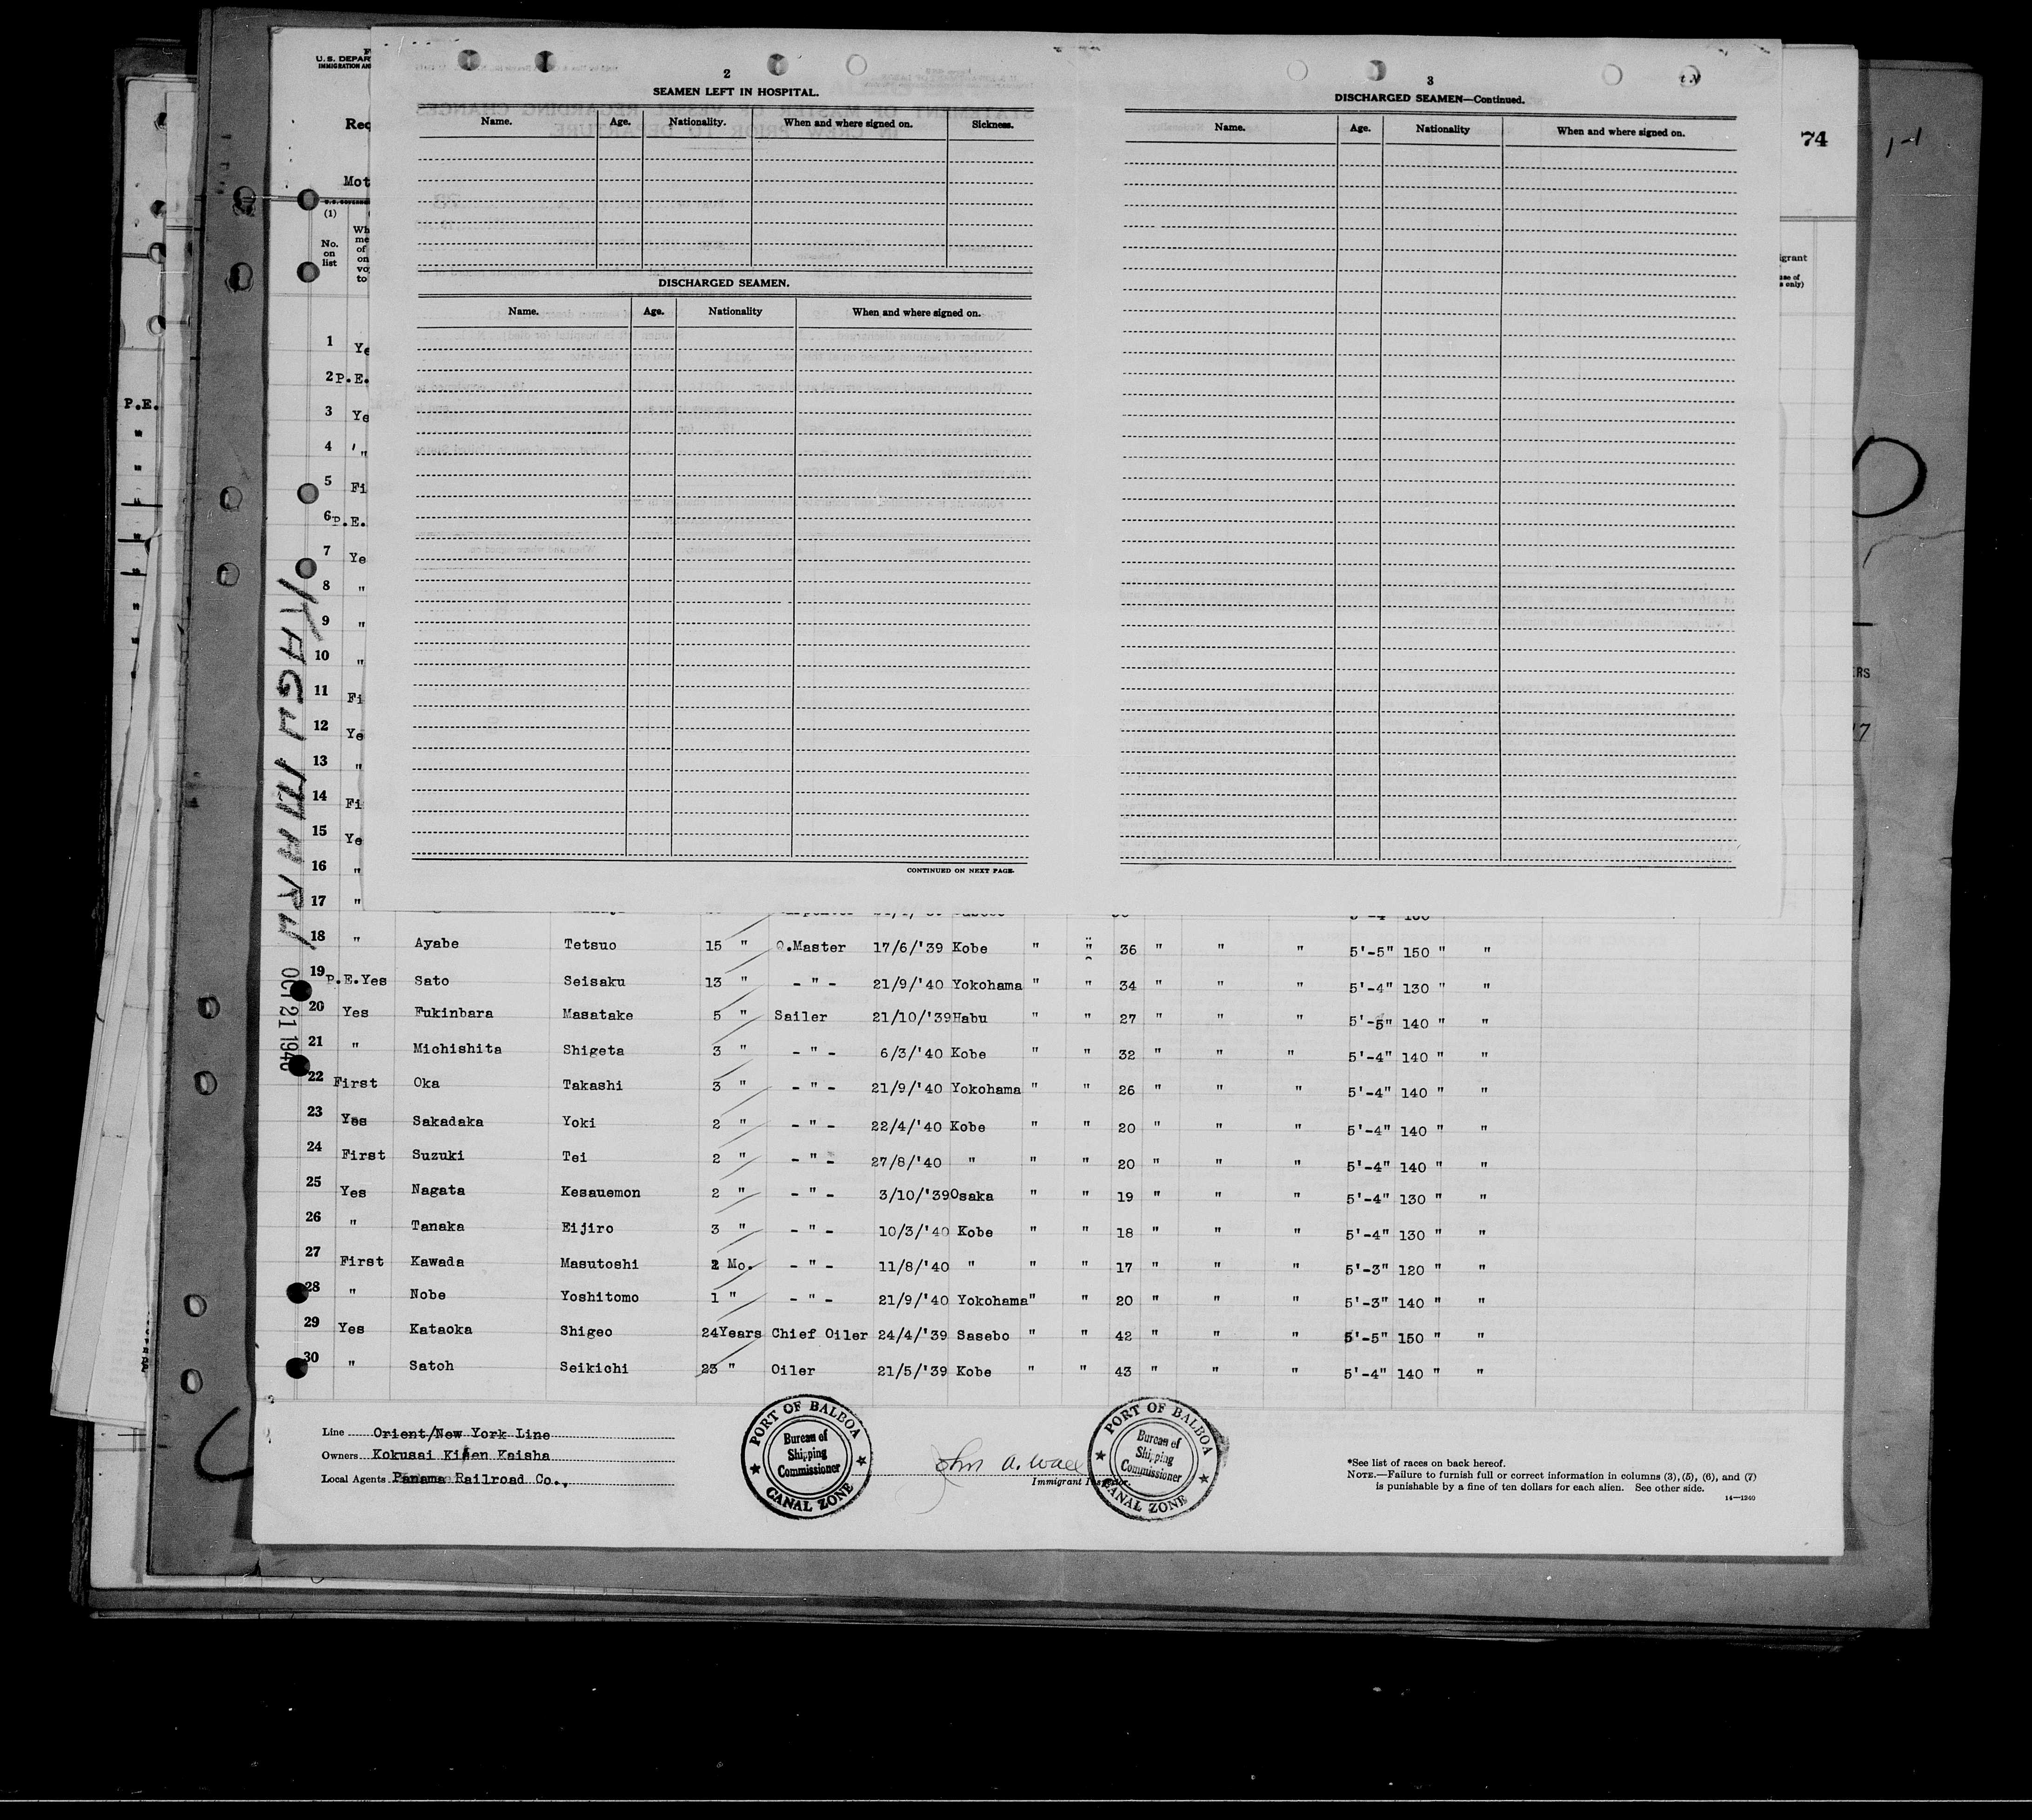 U.S. DEPAR
IMMIGRATION AN
Rec
Mot
(1)
No. on list
74
1-1
2
SEAMEN LEFT IN HOSPITAL.
Name. Age. Nationality. When and where signed on. Sickness.
DISCHARGED SEAMEN.
Name. Age. Nationality When and where signed on.
CONTINUED ON NEXT PAGE.
3
DISCHARGED SEAMEN—Continued.
Name. Age. Nationality When and where signed on.
P.E.
1 Ye
2 P.E.
3 Ye
4 "
5 Fi
6 P.E.
7 Ye
8 "
9 "
10 "
11 Fi
12 Ye
13 "
14 Fi
15 Ye
16 "
17 "
18 " Ayabe Tetsuo 15 " Q.Master 17/6/'39 Kobe " " 36 " " " 5'-5" 150 " "
19 P.E.Yes Sato Seisaku 13 " - " - 21/9/'40 Yokohama " " 34 " " " 5'-4" 130 " "
20 Yes Fukinbara Masatake 5 " Sailer 21/10/'39 Habu " " 27 " " " 5'-5" 140 " "
21 " Michishita Shigeta 3 " - " - 6/3/'40 Kobe " " 32 " " " 5'-4" 140 " "
22 First Oka Takashi 3 " - " - 21/9/'40 Yokohama " " 26 " " " 5'-4" 140 " "
23 Yes Sakadaka Yoki 2 " - " - 22/4/'40 Kobe " " 20 " " " 5'-4" 140 " "
24 First Suzuki Tei 2 " - " - 27/8/'40 " " " 20 " " " 5'-4" 140 " "
25 Yes Nagata Kesauemon 2 " - " - 3/10/'39 Osaka " " 19 " " " 5'-4" 130 " "
26 " Tanaka Eijiro 3 " - " - 10/3/'40 Kobe " " 18 " " " 5'-4" 130 " "
27 First Kawada Masutoshi 2 Mo. - " - 11/8/'40 " " " 17 " " " 5'-3" 120 " "
28 " Nobe Yoshitomo 1 " - " - 21/9/'40 Yokohama " " 20 " " " 5'-3" 140 " "
29 Yes Kataoka Shigeo 24Years Chief Oiler 24/4/'39 Sasebo " " 42 " " " 5'-5" 150 " "
30 " Satoh Seikichi 23 " Oiler 21/5/'39 Kobe " " 43 " " " 5'-4" 140 " "
KAGU MARU
OCT 21 1940
Line Orient/New York Line
Owners Kokusai Kisen Kaisha
Local Agents Panama Railroad Co.,
PORT OF BALBOA
Bureau of
Shipping
Commissioner
CANAL ZONE
John A. Wall
Immigrant Inspector
PORT OF BALBOA
Bureau of
Shipping
Commissioner
CANAL ZONE
*See list of races on back hereof.
NOTE.—Failure to furnish full or correct information in columns (3), (5), (6), and (7)
is punishable by a fine of ten dollars for each alien. See other side.
14—1240